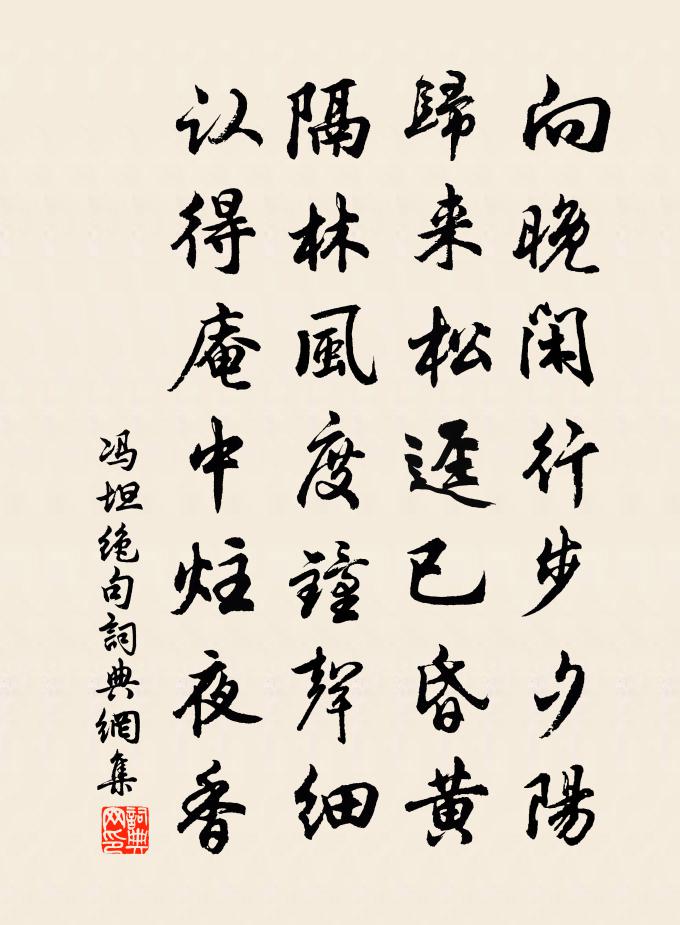 向晚閑行步夕陽
歸来松逕已昏黄
隔林風度鐘聲細
认得庵中炷夜香
冯坦绝句詞典網集
詞典網印